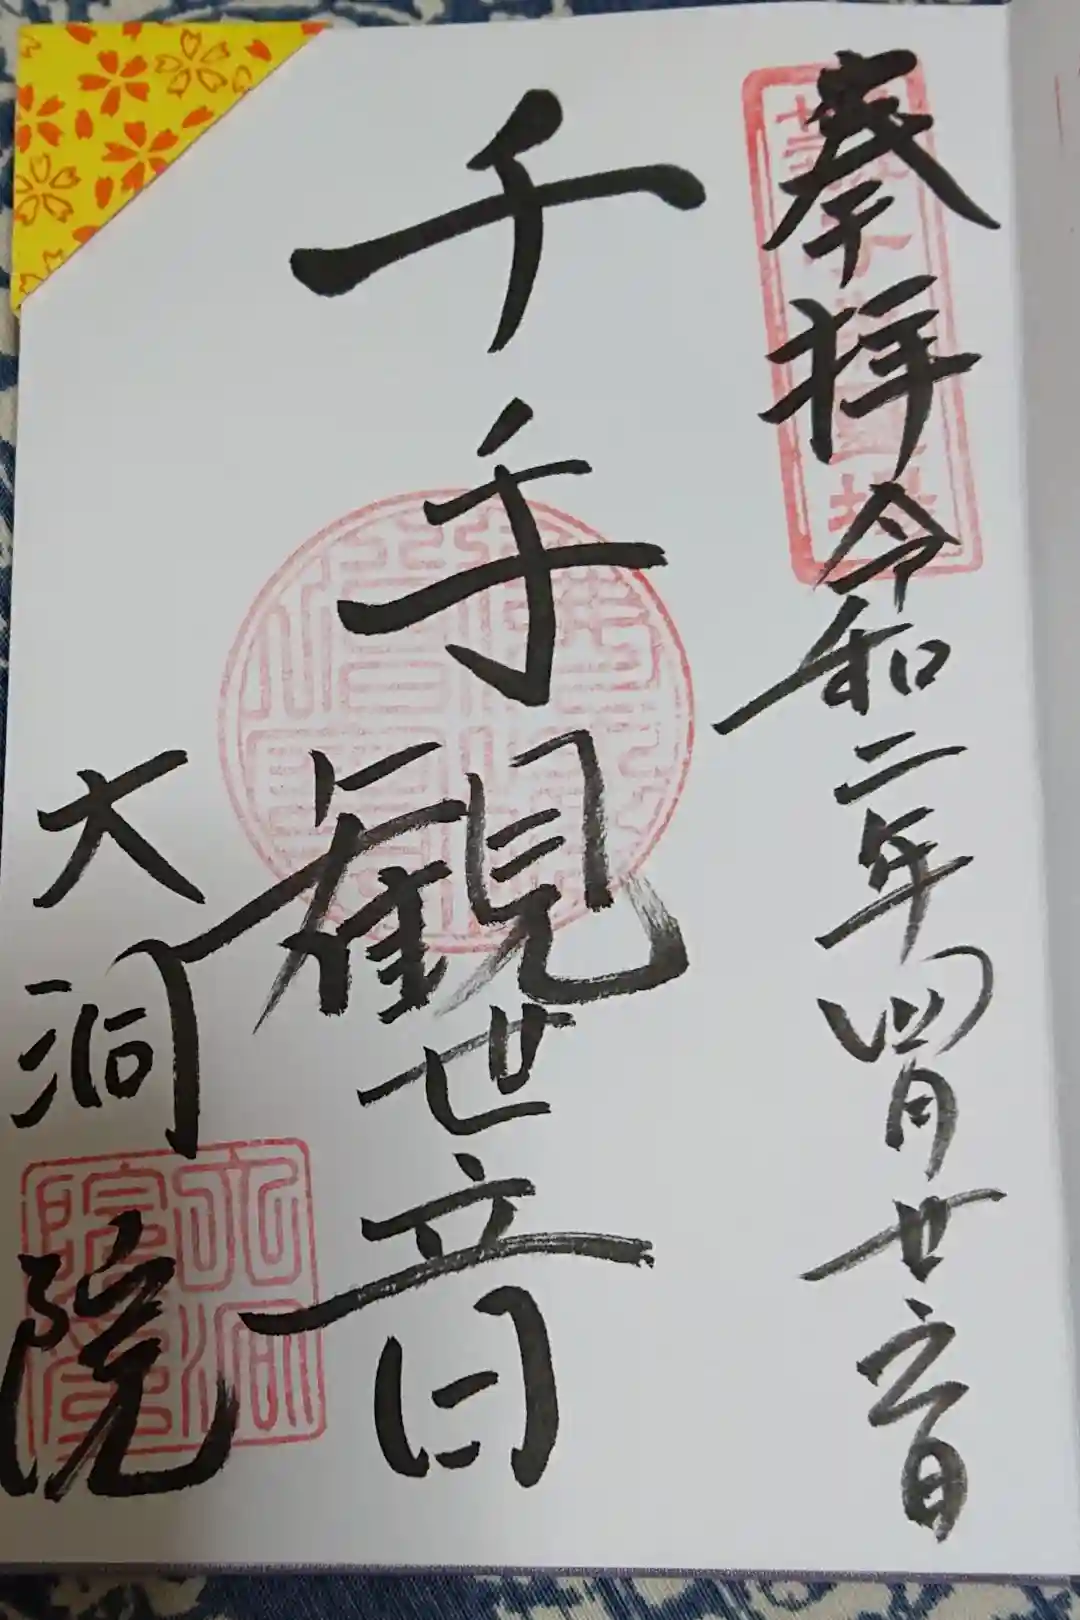 奉拝 令和二年四月廿六日
千手観世音
大洞院